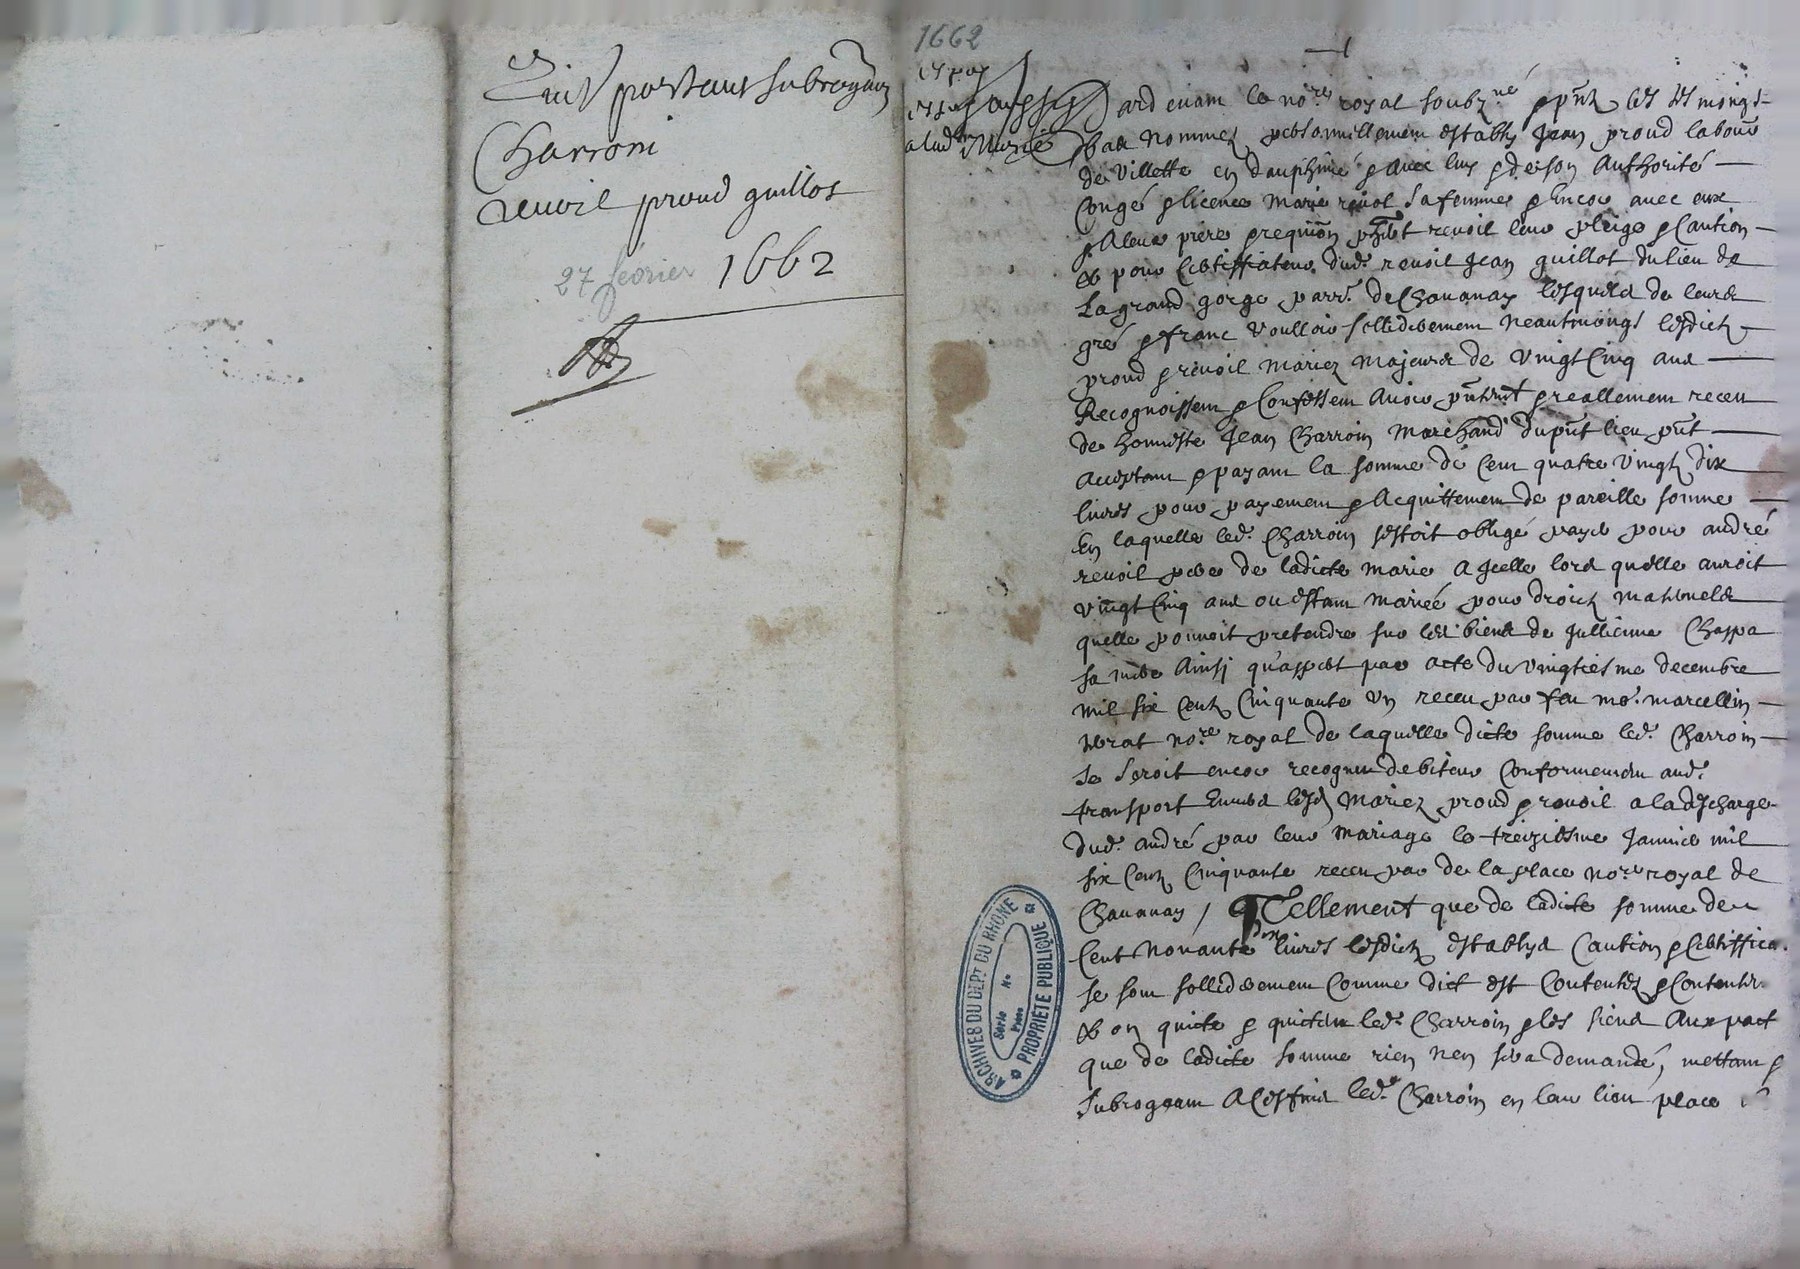 Quit portant subrogaōn
Charroin
Revoil proud guillot
27 fevrier 1662
1662
Pardevant le no.re royal soubz.né & pñtz les tesmoings
bas nommez personnellement establis Jean proud labour
de Villette en dauphiné & avec luy & de son Authorité
Congé & licence Marie revol sa femme & Encor avec eux
& A leur priere & requiōn revoil leur pleige & Caution
& pour Certifficateur dud. revoil Jean guillot du lieu de
La grand gorge parr. de Chavanay lesquels de leurs
gré & franc Voulloir sollidairement neautmoings lesdictz
proud & revoil Mariez Majeurs de Vingt Cinq ans
Recognoissent & Confessent Avoir & reallement receu
de honneste Jean Charroin Marchand du pñt lieu pñt
Acceptant & payant la somme de Cent quatre Vingtz dix
livres pour payement & Acquittement de pareille somme
En laquelle led. Charroin sestoit obligé payer pour andré
revoil pere de ladicte Marie A Jcelle lors quelle auroit
vingt Cinq ans ou estant Mariée pour droictz maternels
quelle pouvoit pretendre sur les biens de Jullienne Chappa
sa mere Ainsj qu'appert par acte du vingtiesme decembre
mil six Centz Cinquante Un receu par feu me. marcellin
no.re royal de laquelle dicte somme led. Charroin
se seroit encor recognu debiteur Conformement aud.
transport Envers lesd Mariez proud & revoil a la descharge
dud. andré par leur Mariage le treiziesme Janvier mil
six Centz Cinquante receu par de la place no.re royal de
Chavanay / Tellement que de ladicte somme de
Cent Nonante livres lesdictz establys Caution & Certiffica.
se sont sollidairement Comme dict est Contentez & Contentent
& on quicte & quictent led. Charroin & les siens Avec pact
que de ladicte somme rien nen sera demandé, mettant &
subrogeant A ces fins led. Charroin en leur lieu place
ARCHIVES DU DEPT DU RHONE
Serie No
Piece
PROPRIÉTÉ PUBLIQUE